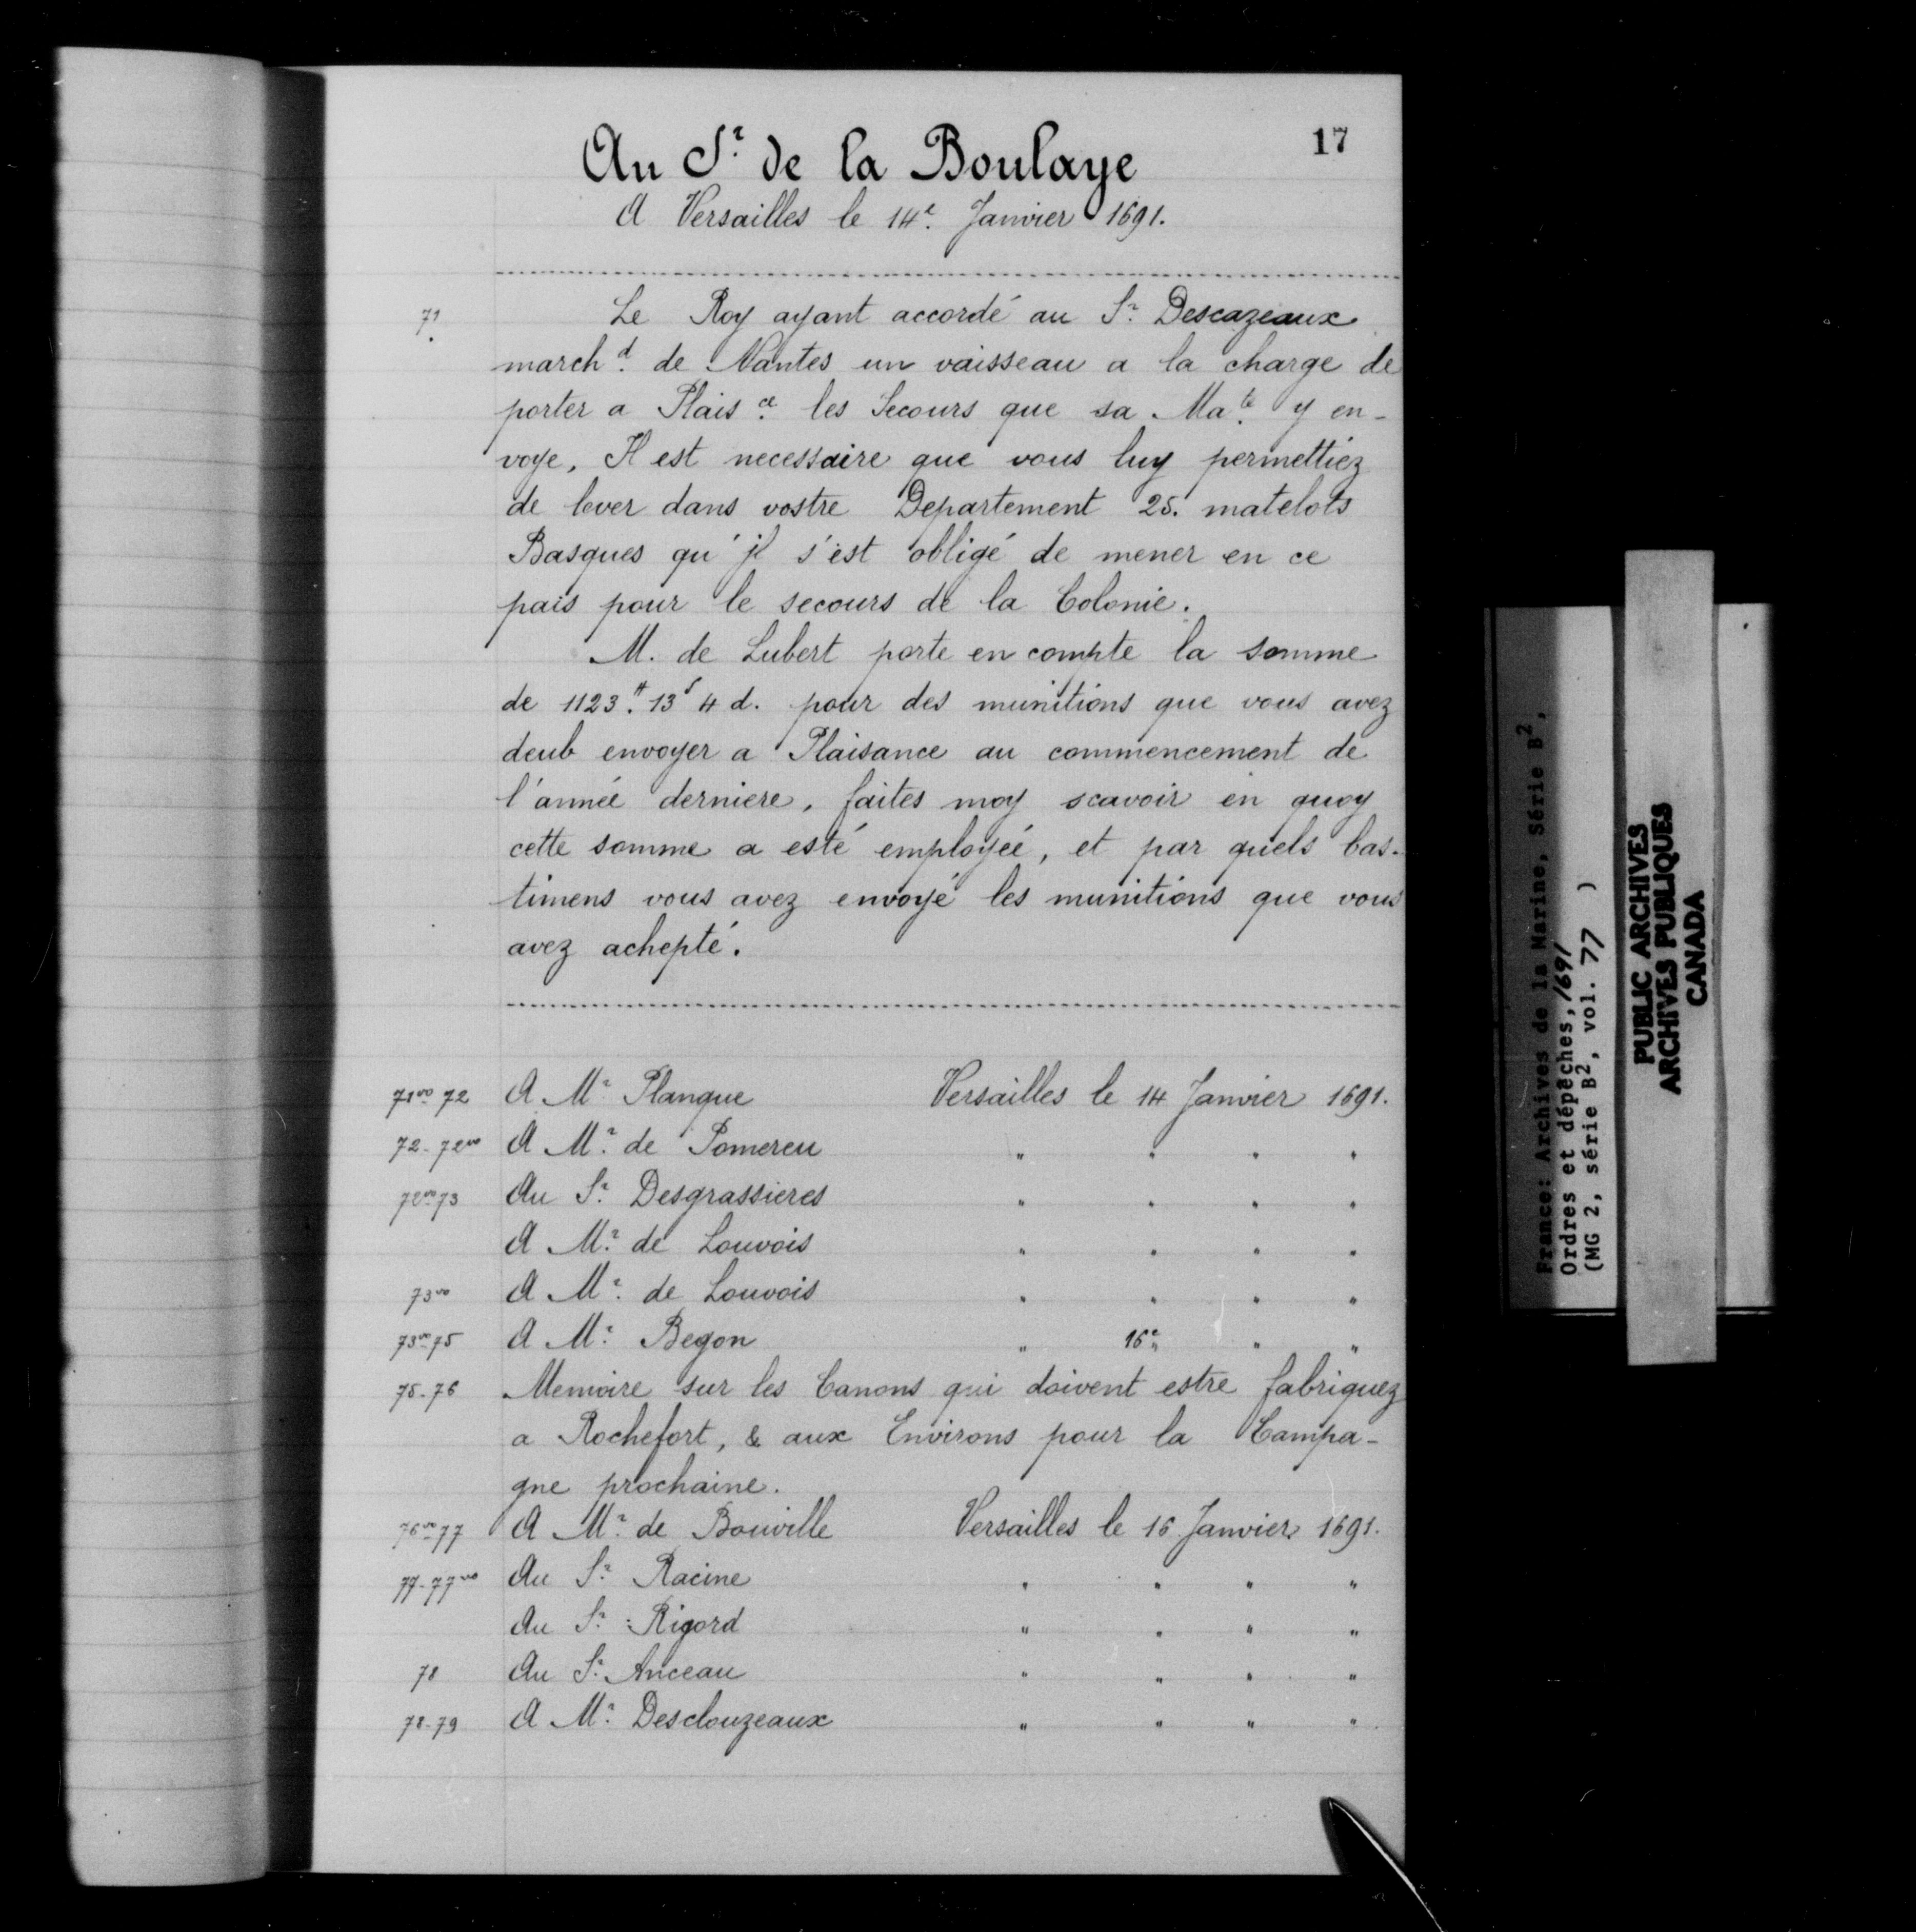 17
Au Sr. de la Boulaye
A Versailles le 14e. Janvier 1691.
71.
Le Roy ayant accordé au Sr. Descazeaux
marchd. de Nantes un vaisseau a la charge de
porter a Plaisce. les Secours que sa Mate. y en-
voye, Il est necessaire que vous luy permettiéz
de lever dans vostre Departement 25. matelots
Basques qu'jl s'est obligé de mener en ce
pais pour le secours de la Colonie.
M. de Lubert porte en compte la somme
de 1123.# 13s 4 d. pour des munitions que vous avez
deub envoyer a Plaisance au commencement de
l'année derniere, faites moy scavoir en quoy
cette somme a esté employéé, et par quels bas-
timens vous avez envoyé les munitions que vous
avez achepté.
71vo 72 A Mr. Planque Versailles le 14 Janvier 1691.
72-72vo A Mr. de Pomereu " " " "
72vo-73 Au Sr. Desgrassieres " " " "
A Mr. de Louvois " " " "
73vo A Mr. de Louvois " " " "
73vo-75 A Mr. Begon " 16e " "
75-76 Memoire sur les Canons qui doivent estre fabriquez
a Rochefort, & aux Environs pour la Campa-
gne prochaine.
76vo-77 A Mr. de Bouville Versailles le 16 Janvier 1691.
77-77vo Au Sr. Racine " " " "
Au Sr. Rigord " " " "
78 Au Sr. Anceau " " " "
78-79 A Mr. Desclouzeaux " " " "
France: Archives de la Marine, Série B2,
Ordres et dépêches, 1691
(MG 2, série B2, vol. 77 )
PUBLIC ARCHIVES
ARCHIVES PUBLIQUES
CANADA